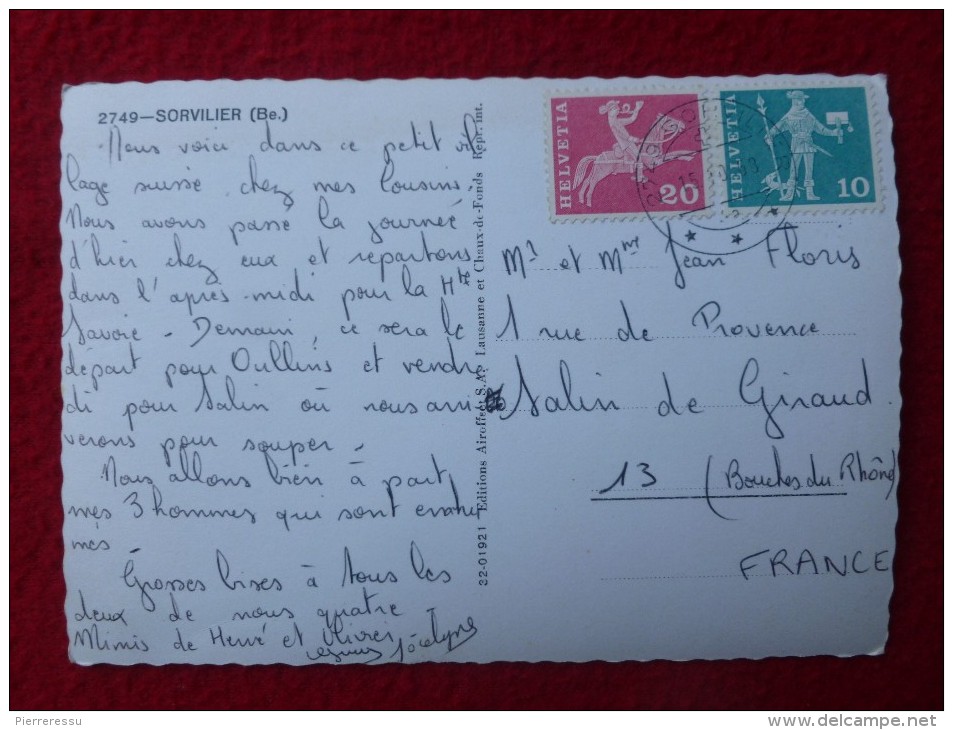 2749—SORVILIER (Be.)
Nous voici dans ce petit vil
lage suisse chez mes cousins.
Nous avons passé la journée
d'hier chez eux et repartons
dans l'après-midi pour la Hte
Savoie - Demain, ce sera le
départ pour Oullins et vendre
di pour Salin où nous arri
verons pour souper -
Nous allons bien à part
mes 3 hommes qui sont enrhu
més
Grosses bises à tous les
deux de nous quatre -
Mimis de Hervé et Olivier
Jocelyne
22-01921 Editions Airoffset S.A. Lausanne et Chaux-de-Fonds Repr. int.
HELVETIA
20
HELVETIA
10
Mr et Mme Jean Floris
1 rue de Provence
Salin de Giraud
13 (Bouches du Rhône)
FRANCE
Pierreressu
www.delcampe.net